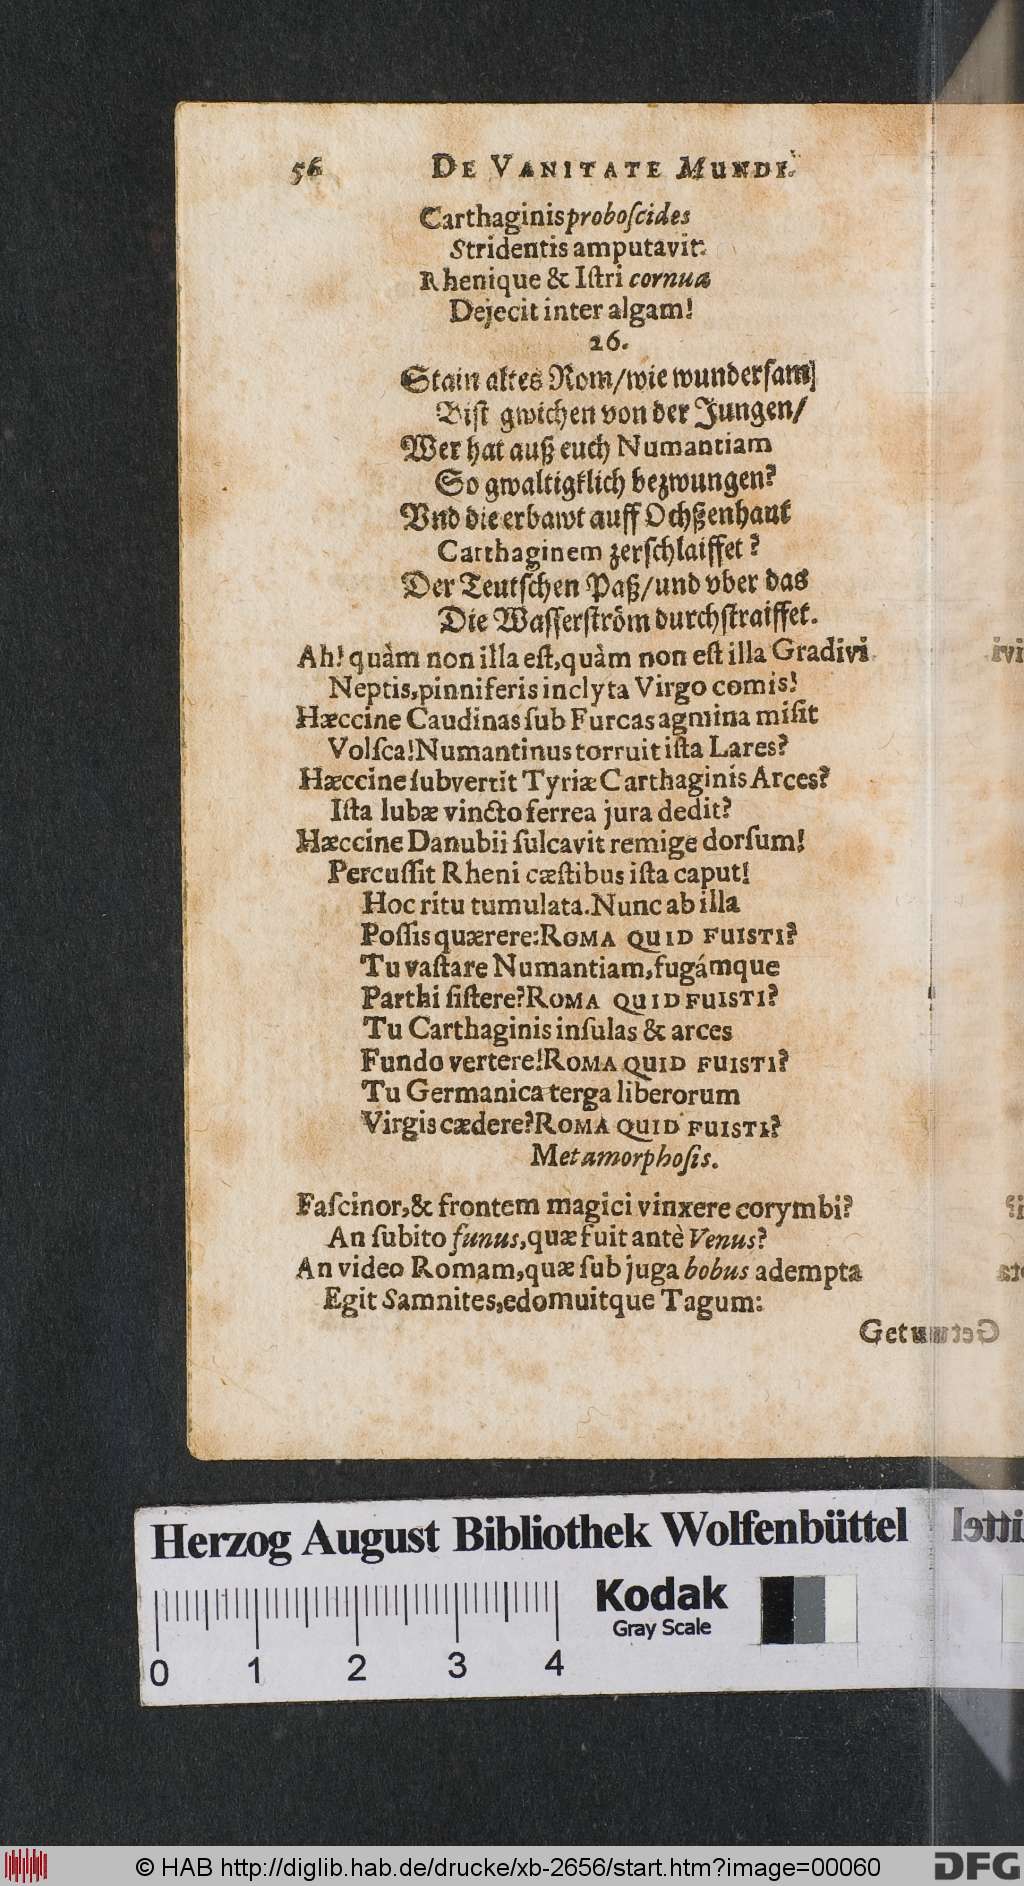 56 DE VANITATE MUNDI.
Carthaginis proboſcides
Stridentis amputavit:
Rhenique & Iſtri cornua
Dejecit inter algam!
26.
Stain altes Rom/wie wunderſam
Biſt gwichen von der Jungen/
Wer hat auß euch Numantiam
So gwaltigklich bezwungen?
Vnd die erbawt auff Ochßenhaut
Carthaginem zerſchlaiffet?
Der Teutſchen Paß/und vber das
Die Waſſerſtröm durchſtraiffet.
Ah! quàm non illa eſt, quàm non eſt illa Gradivi
Neptis, pinniferis inclyta Virgo comis!
Hæccine Caudinas ſub Furcas agmina miſit
Volſca! Numantinus torruit iſta Lares?
Hæccine ſubvertit Tyriæ Carthaginis Arces?
Iſta Iubæ vincto ferrea jura dedit?
Hæccine Danubii ſulcavit remige dorſum!
Percuſſit Rheni cæſtibus iſta caput!
Hoc ritu tumulata. Nunc ab illa
Poſſis quærere: ROMA QUID FUISTI?
Tu vaſtare Numantiam, fugámque
Parthi ſiſtere? ROMA QUID FUISTI?
Tu Carthaginis inſulas & arces
Fundo vertere! ROMA QUID FUISTI?
Tu Germanica terga liberorum
Virgis cædere? ROMA QUID FUISTI?
Metamorphoſis.
Faſcinor, & frontem magici vinxere corymbi?
An ſubito funus, quæ fuit antè Venus?
An video Romam, quæ ſub juga bobus adempta
Egit Samnites, edomuitque Tagum:
Getum
Herzog August Bibliothek Wolfenbüttel
Kodak
Gray Scale
0 1 2 3 4
© HAB http://diglib.hab.de/drucke/xb-2656/start.htm?image=00060
DFG